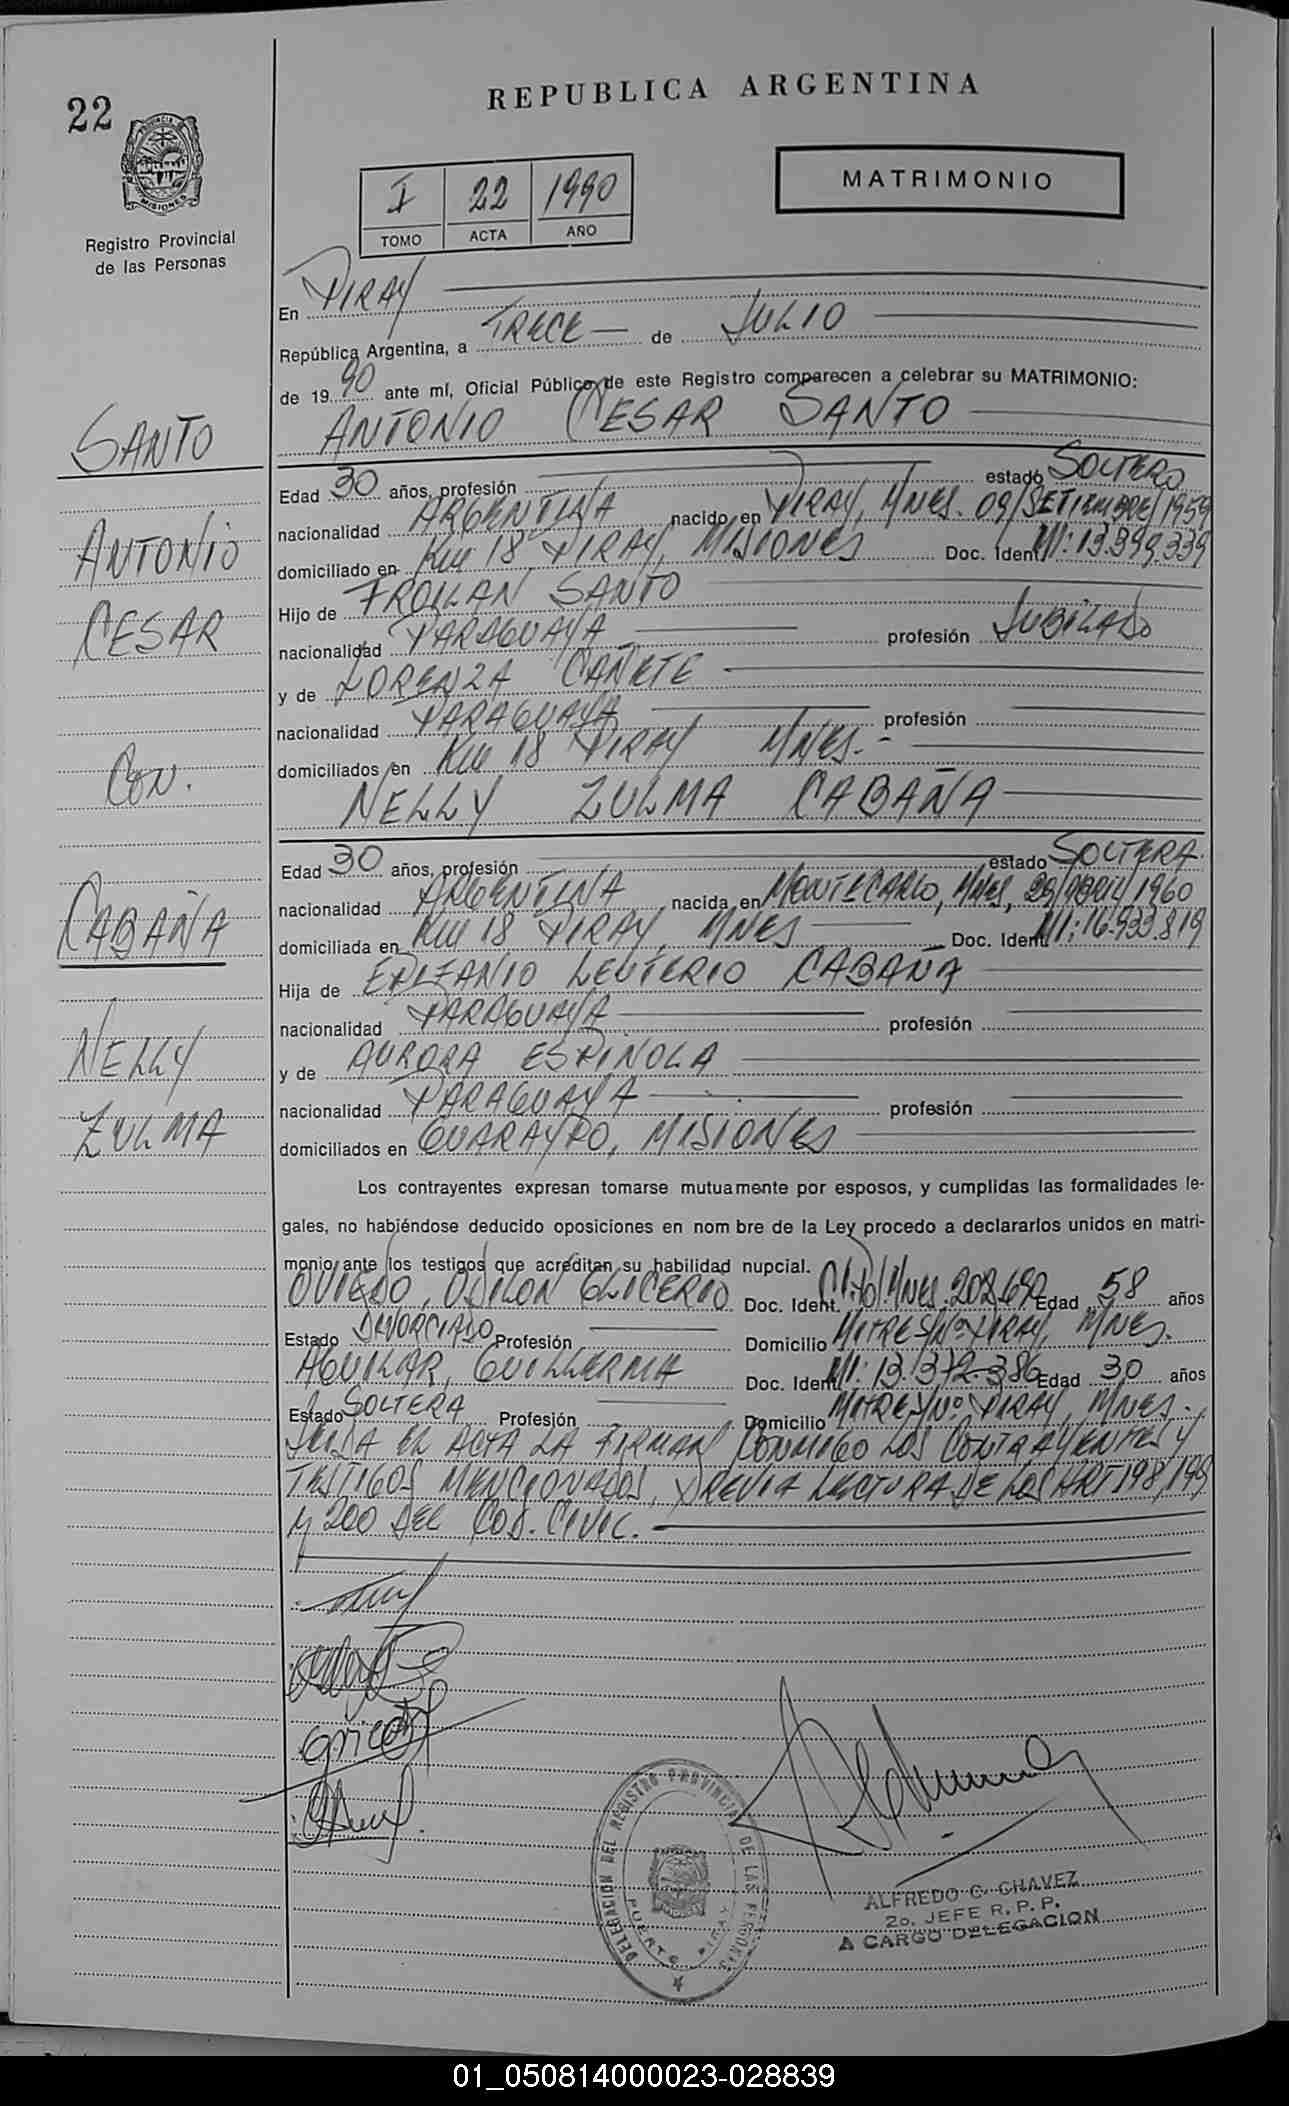 22
REPUBLICA ARGENTINA
PROVINCIA DE
MISIONES
Registro Provincial
de las Personas
I 22 1990
TOMO ACTA AÑO
MATRIMONIO
En PIRAY
República Argentina, a TRECE de JULIO
de 1990 ante mí, Oficial Público de este Registro comparecen a celebrar su MATRIMONIO:
ANTONIO CESAR SANTO
Edad 30 años, profesión estado SOLTERO
nacionalidad ARGENTINA nacido en PIRAY, MNES. 09/SETIEMBRE/1959
domiciliado en Km 18 PIRAY, MISIONES Doc. Ident. MI: 13.399.339
Hijo de FROILAN SANTO
nacionalidad PARAGUAYA profesión JUBILADO
y de LORENZA CAÑETE
nacionalidad PARAGUAYA profesión
domiciliados en Km 18 PIRAY MNES.-
NELLY ZULMA CABAÑA
Edad 30 años, profesión estado SOLTERA.
nacionalidad ARGENTINA nacida en MONTECARLO, MNES, 29/ABRIL/1960
domiciliada en Km 18 PIRAY, MNES Doc. Ident. MI: 16.533.819
Hija de EPIFANIO LEUTERIO CABAÑA
nacionalidad PARAGUAYA profesión
y de AURORA ESPINOLA
nacionalidad PARAGUAYA profesión
domiciliados en GUARAYPO, MISIONES
Los contrayentes expresan tomarse mutuamente por esposos, y cumplidas las formalidades le-
gales, no habiéndose deducido oposiciones en nom bre de la Ley procedo a declararlos unidos en matri-
monio ante los testigos que acreditan su habilidad nupcial.
OVIEDO, ODILON GLICERIO Doc. Ident. MNES. 202.692 Edad 58 años
Estado DIVORCIADO Profesión Domicilio MITRE S/Nº PIRAY, MNES.
AGUILAR, GUILLERMA Doc. Ident. MI: 13.372.386 Edad 30 años
Estado SOLTERA Profesión Domicilio MITRE S/Nº PIRAY, MNES.-
LEIDA EL ACTA LA FIRMAN CONMIGO LOS CONTRAYENTES Y
TESTIGOS MENCIONADOS, PREVIA LECTURA DE LOS ART 198, 199
Y 200 DEL COD. CIVIL.
SANTO
ANTONIO
CESAR
CON.
CABAÑA
NELLY
ZULMA
DELEGACION DEL REGISTRO PROVINCIAL DE LAS PERSONAS
PUERTO PIRAY
ALFREDO C. CHAVEZ
2o. JEFE R. P. P.
A CARGO DELEGACION
01_050814000023-028839